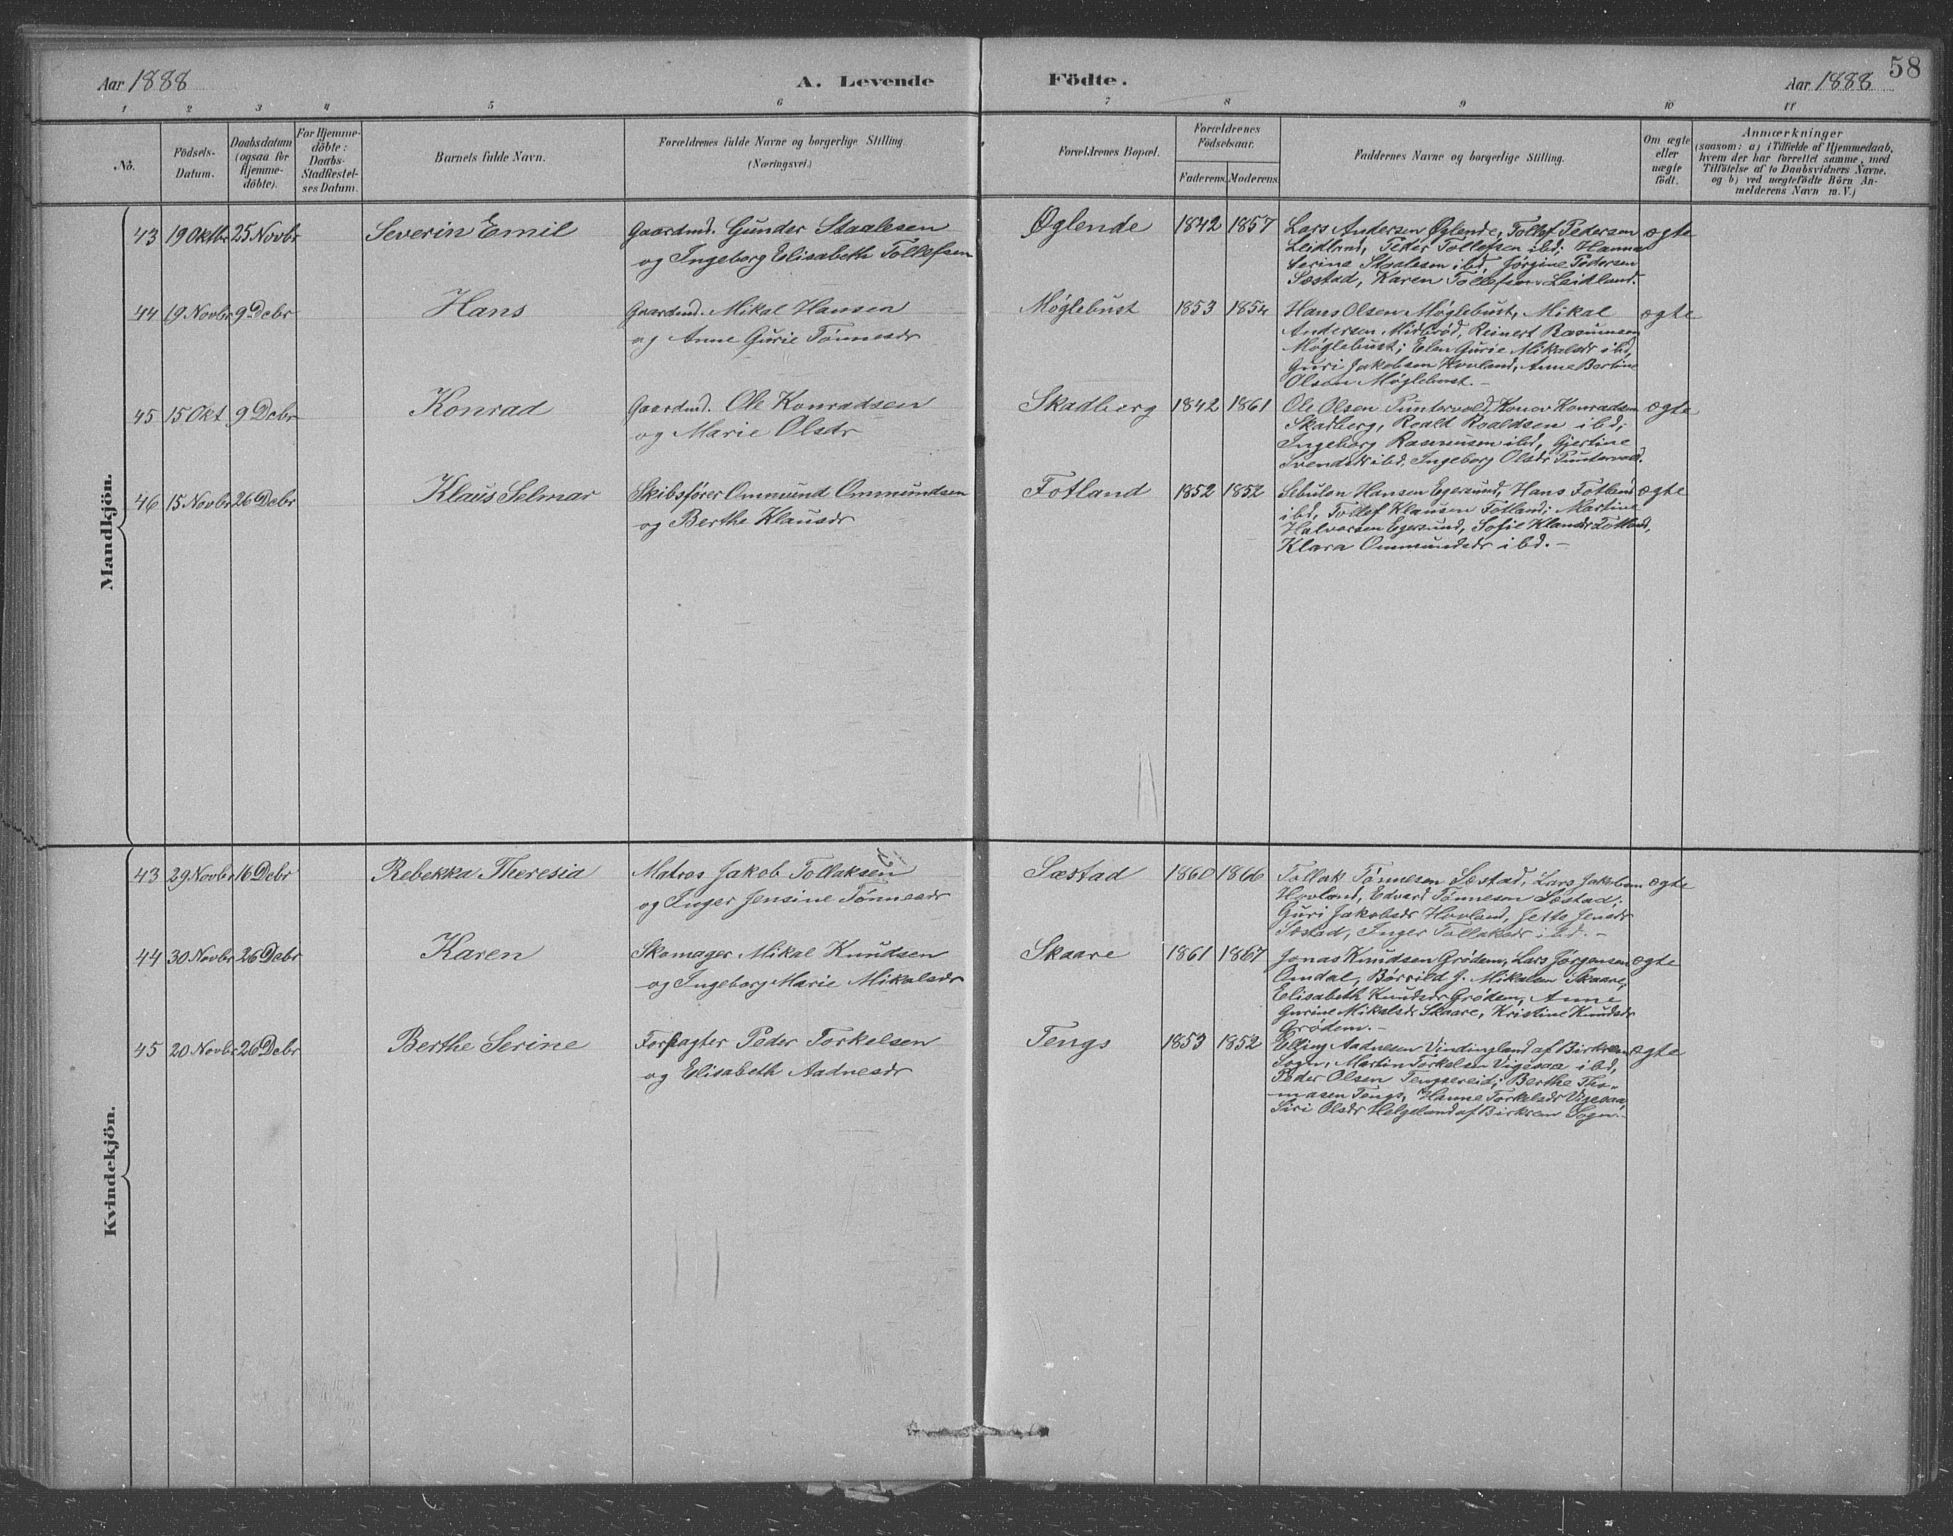 58
Aar 1888
A. Levende Födte.
Aar 1888
1 2 3 4 5 6 7 8 9 10 11
No.
Födsels-
Datum.
Daabsdatum
(ogsaa for
Hjemme-
döbte).
For Hjemme-
döbte:
Daabs-
Stadfæstel-
ses Datum.
Barnets fulde Navn.
Forældrenes fulde Navne og borgerlige Stilling.
(Næringsvei.)
Forældrenes Bopæl.
Forældrenes
Födselsaar.
Faderens. Moderens.
Faddernes Navne og borgerlige Stilling.
Om ægte
eller
uægte
födt.
Anmærkninger
(saasom: a) i Tilfælde af Hjemmedaab,
hvem der har forrettet samme, med
Tilföielse af to Daabsvidners Navne,
og b) ved uægtefödte Börn An-
melderens Navn m. V.)
Mandkjön.
43 19 Oktbr 25 Novbr Severin Emil
Gaardmd. Gunder Staalesen
og Ingeborg Elisabeth Tollefsen
Øglende 1842 1857
Lars Andersen Øglende, Tollef Pedersen
Leidland, Peder Tollefsen ibd; Hanna
Serine Staalesen ibd, Jørgine Pedersen
Sæstad, Karen Tollefsen Leidland.
ægte
44 19 Novbr 9 Debr Hans
Gaardmd. Mikal Hansen
og Anne Gurie Tønnesdr
Møglebust 1853 1854
Hans Olsen Møglebust, Mikal
Andersen Midbrød, Reinert Rasmusen
Møglebust; Elen Gurie Mikalsdr ibd,
Guri Jakobsen Hovland, Anne Bertine
Olsen Møglebust.-
ægte
45 15 Okt 9 Debr Konrad
Gaardmd. Ole Konradsen
og Marie Olsdr
Skadberg 1842 1861
Ole Olsen Puntervold, Konov Konradsen
Skadberg, Roald Roaldsen ibd;
Ingeborg Rasmusen ibd, Gjertine
Svendsdr ibd, Ingeborg Olsdr Puntervold.
ægte
46 15 Novbr 26 Debr Klaus Selmar
Skibsfører Ommund Ommundsen
og Berthe Klausdr
Fotland 1852 1852
Sebulon Hansen Egersund, Hans Fotland
ibd, Tollef Klausen Fotland; Martine
Halvorsen Egersund, Sofie Klausdr Fotland,
Klara Ommundsdr ibd.-
ægte
Kvindekjön.
43 29 Novbr 16 Debr Rebekka Theresia
Matros Jakob Tollaksen
og Inger Jensine Tønnesdr
Sæstad 1860 1866
Tollak Tønnesen Sæstad, Lars Jakobsen
Hovland, Edvard Tønnesen Sæstad;
Guri Jakobsdr Hovland, Jette Jensdr
Sæstad, Inger Tollaksdr ibd.-
ægte
44 30 Novbr 26 Debr Karen
Skomager Mikal Knudsen
og Ingeborg Marie Mikalsdr
Skaare 1861 1867
Jonas Knudsen Grødem, Lars Jørgensen
Omdal, Børsild J. Mikalsen Skaare,
Elisabeth Knudsdr Grødem, Anne
Gurine Mikalsdr Skaare, Kristine Knudsdr
Grødem.-
ægte
45 20 Novbr 26 Debr Berthe Serine
Forpagter Peder Torkelsen
og Elisabeth Aadnesdr
Tengs 1853 1852
Elling Aadnesen Vindingland af Birkrem
Sogn, Martin Torkelsen Vigesaa ibd,
Peder Olsen Tengsereid; Berthe Tho-
masen Tengs, Hanne Torkelsdr Vigesaa,
Siri Olsdr Helgeland af Birkrem Sogn.-
ægte